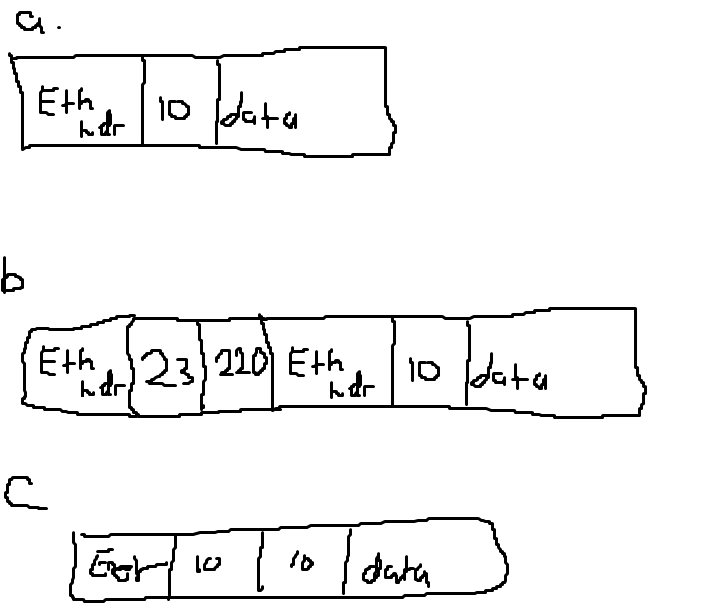 a.
Eth hdr 10 data
b
Eth hdr 23 220 Eth hdr 10 data
C
10 10 data